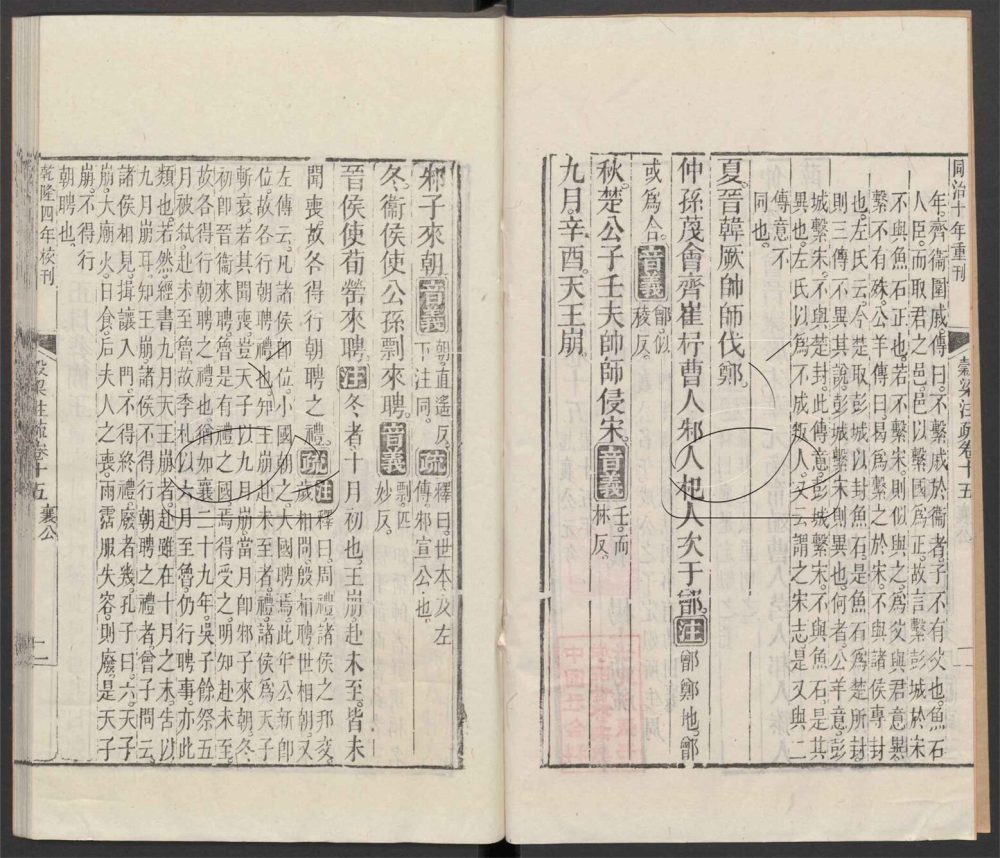 同治十年重刊
穀梁注疏卷十五
年齊衞圍戚傳曰不繫戚於衞者子不有父也魚石
人臣而取君之邑邑以繫國爲正故言繫彭城於宋
不與魚石正也若不繫宋則似與之爲父與君意異
繫不有殊公羊傳曰曷爲繫之於宋不與諸侯專封
也左氏云今楚取彭城以封魚石是魚石爲楚所封
則三傳不異其說彭城繫宋則異也何者公羊意彭
城繫宋不與楚封此傳意彭城繫宋不與魚石是其
異也左氏以爲不成叛人又云謂之宋志是又與二
傳意不
同也
夏晉韓厥帥師伐鄭
仲孫蔑會齊崔杼曹人邾人杞人次于鄫注鄫鄭地鄫
或爲合音義鄫似
稜反
秋楚公子壬夫帥師侵宋音義壬而
林反
九月辛酉天王崩
邾子來朝音義朝直遥反
下注同疏釋曰世本及左
傳邾宣公也
冬衞侯使公孫剽來聘音義剽匹
妙反
晉侯使荀罃來聘注冬者十月初也王崩赴未至皆未
聞喪故各得行朝聘之禮疏注釋曰周禮諸侯之邦交
歲相問殷相聘世相朝又
左傳云凡諸侯即位小國朝之大國聘焉此年公新即
位故各行朝聘之禮也知王崩赴未至者禮諸侯爲天子
斬衰若其聞喪豈天子以九月崩當月即邾子來朝冬
初即晉衞來聘魯是有禮之國焉得受之明知赴未至
故各得行朝聘之禮也猶如襄二十九年吳子餘祭五
月被弑赴未至魯故季札以六月至魯仍行聘事亦此
類也若然經書九月天王崩者赴雖在十月之末告以
九月崩耳知王崩諸侯不得行朝聘之禮者曾子問云
諸侯相見揖讓入門不得終禮廢者幾孔子曰六天子
崩大廟火日食后夫人之喪雨霑服失容則廢是天子
崩不得行
朝聘也
乾隆四年校刊
穀梁注疏卷十五 襄公
二